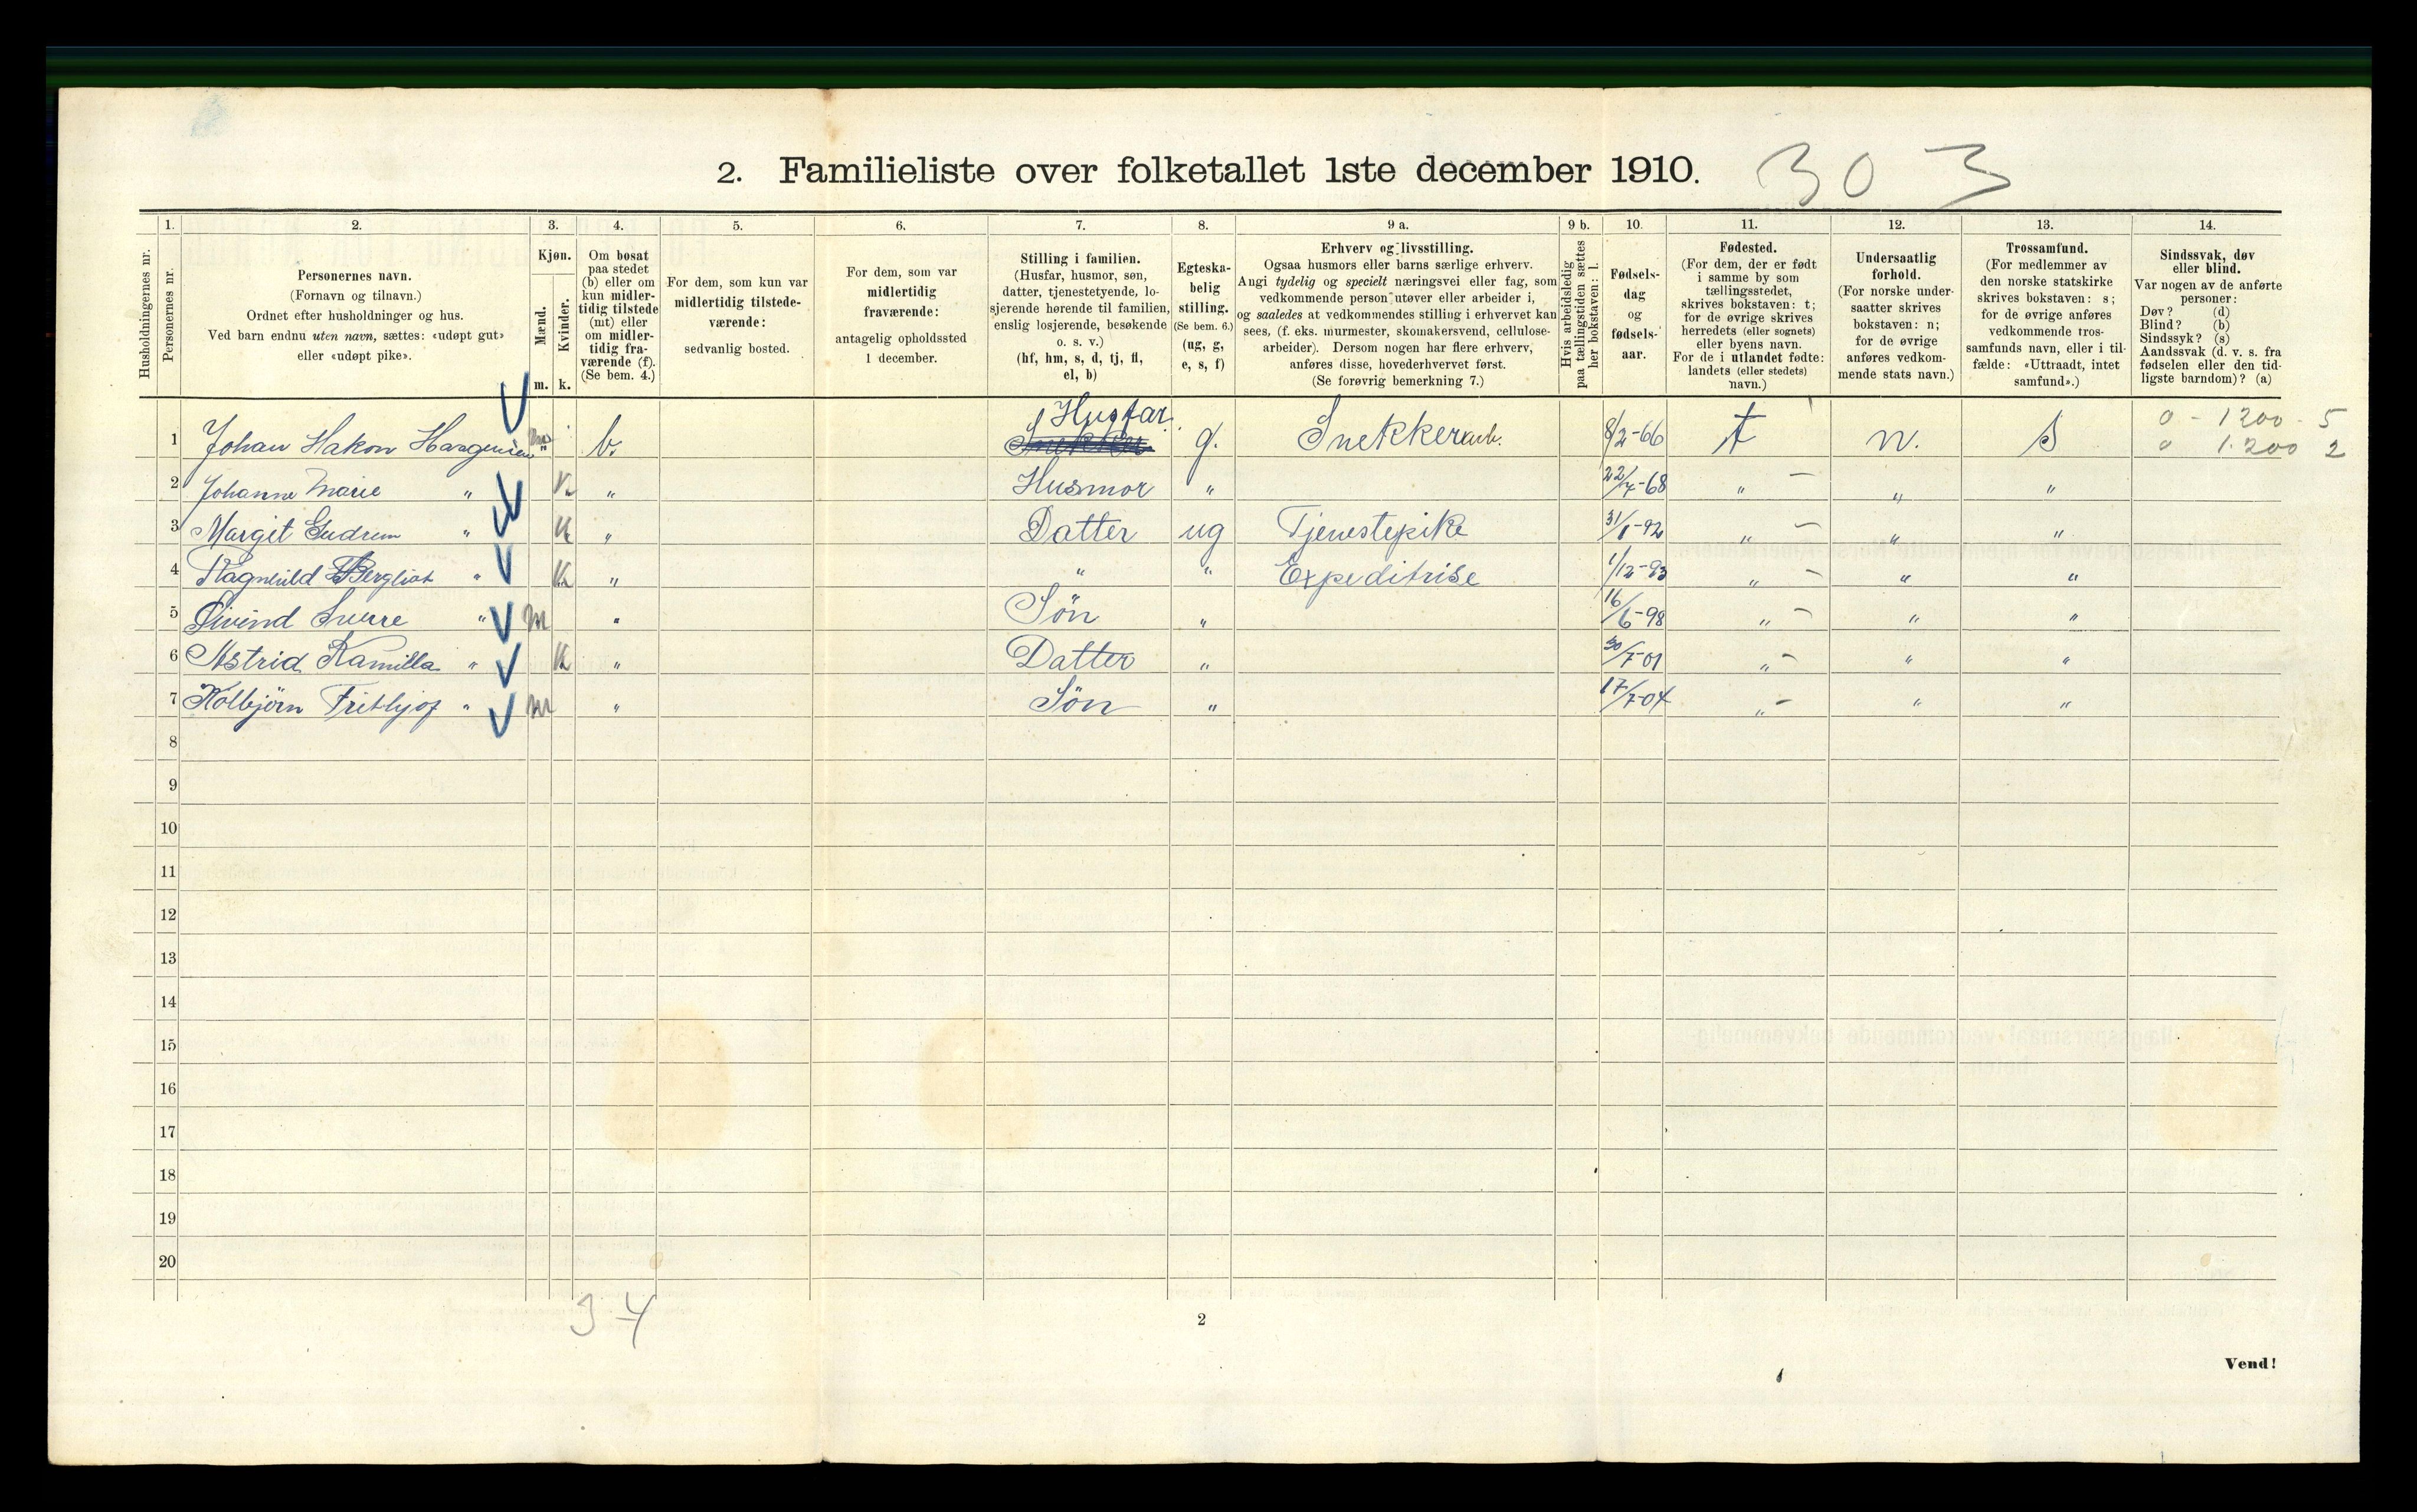 2. Familieliste over folketallet 1ste december 1910. 303
1. 2. 3. 4. 5. 6. 7. 8. 9 a. 9 b. 10. 11. 12. 13. 14.
Husholdningernes nr.
Personernes nr.
Personernes navn.
(Fornavn og tilnavn.)
Ordnet efter husholdninger og hus.
Ved barn endnu uten navn, sættes: «udøpt gut»
eller «udøpt pike».
Kjøn.
Mænd.
Kvinder.
m. k.
Om bosat
paa stedet
(b) eller om
kun midler-
tidig tilstede
(mt) eller
om midler-
tidig fra-
værende (f).
(Se bem. 4.)
For dem, som kun var
midlertidig tilstede-
værende:
sedvanlig bosted.
For dem, som var
midlertidig
fraværende:
antagelig opholdssted
1 december.
Stilling i familien.
(Husfar, husmor, søn,
datter, tjenestetyende, lo-
sjerende hørende til familien,
enslig losjerende, besøkende
o. s. v.)
(hf, hm, s, d, tj, fl,
el, b)
Egteska-
belig
stilling.
(Se bem. 6.)
(ug, g,
e, s, f)
Erhverv og livsstilling.
Ogsaa husmors eller barns særlige erhverv.
Angi tydelig og specielt næringsvei eller fag, som
vedkommende person utøver eller arbeider i,
og saaledes at vedkommendes stilling i erhvervet kan
sees, (f. eks. murmester, skomakersvend, cellulose-
arbeider). Dersom nogen har flere erhverv,
anføres disse, hovederhvervet først.
(Se forøvrig bemerkning 7.)
Hvis arbeidsledig
paa tællingstiden sættes
her bokstaven: l.
Fødsels-
dag
og
fødsels-
aar.
Fødested.
(For dem, der er født
i samme by som
tællingsstedet,
skrives bokstaven: t;
for de øvrige skrives
herredets (eller sognets)
eller byens navn.
For de i utlandet fødte:
landets (eller stedets)
navn.)
Undersaatlig
forhold.
(For norske under-
saatter skrives
bokstaven: n;
for de øvrige
anføres vedkom-
mende stats navn.)
Trossamfund.
(For medlemmer av
den norske statskirke
skrives bokstaven: s;
for de øvrige anføres
vedkommende tros-
samfunds navn, eller i til-
fælde: «Uttraadt, intet
samfund».)
Sindssvak, døv
eller blind.
Var nogen av de anførte
personer:
Døv? (d)
Blind? (b)
Sindssyk? (s)
Aandssvak (d. v. s. fra
fødselen eller den tid-
ligste barndom)? (a)
Husfar 0 - 1200 - 5
1 Johan Hakon m b. g. Snekker arb. 8/2-66 t n. s 0 1.200 2
2 Johanne Marie " k " Husmor " 22/7-68 " - " "
3 Margit Gudrun " k " Datter ug Tjenestepike 31/1-92 " - " "
4 Ragnhild Bergliot " k " " " Expeditrise 1/12-93 " - " "
5 Øivind Sverre " m " Søn " 16/6-98 " - " "
6 Astrid Kamilla " k " Datter " 30/7-01 " - " "
7 Kolbjørn Frithjof " m " Søn " 17/7-04 " - " "
8
9
10
11
12
13
14
15
16
17
18
19
20
34
2
Vend!